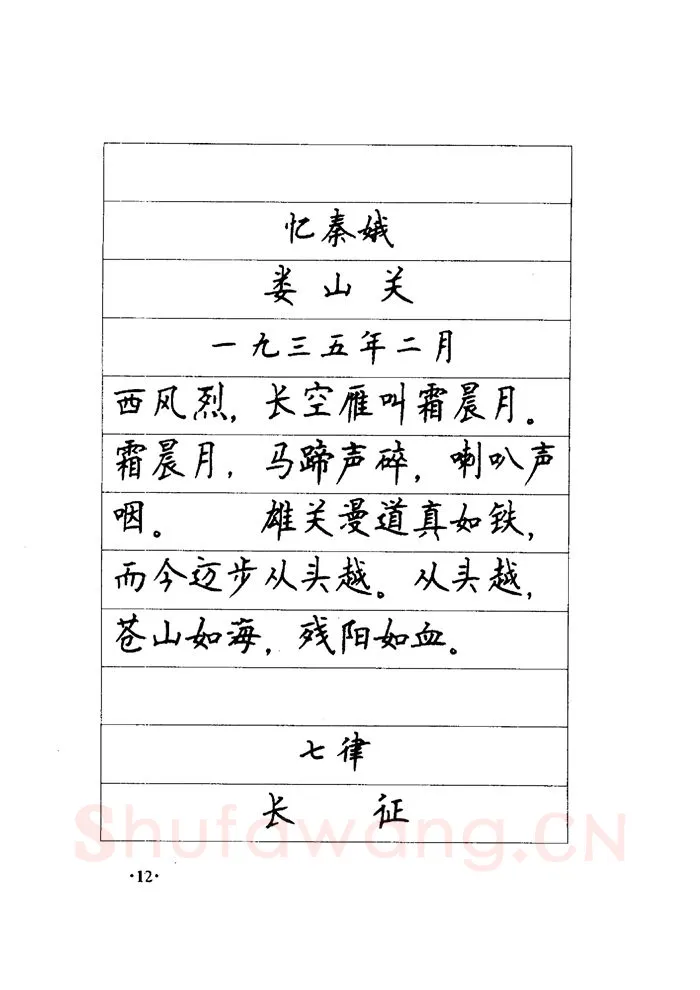 忆秦娥
娄山关
一九三五年二月
西风烈，长空雁叫霜晨月。
霜晨月，马蹄声碎，喇叭声
咽。 雄关漫道真如铁，
而今迈步从头越。从头越，
苍山如海，残阳如血。
七律
长 征
Shufawang.CN
·12·